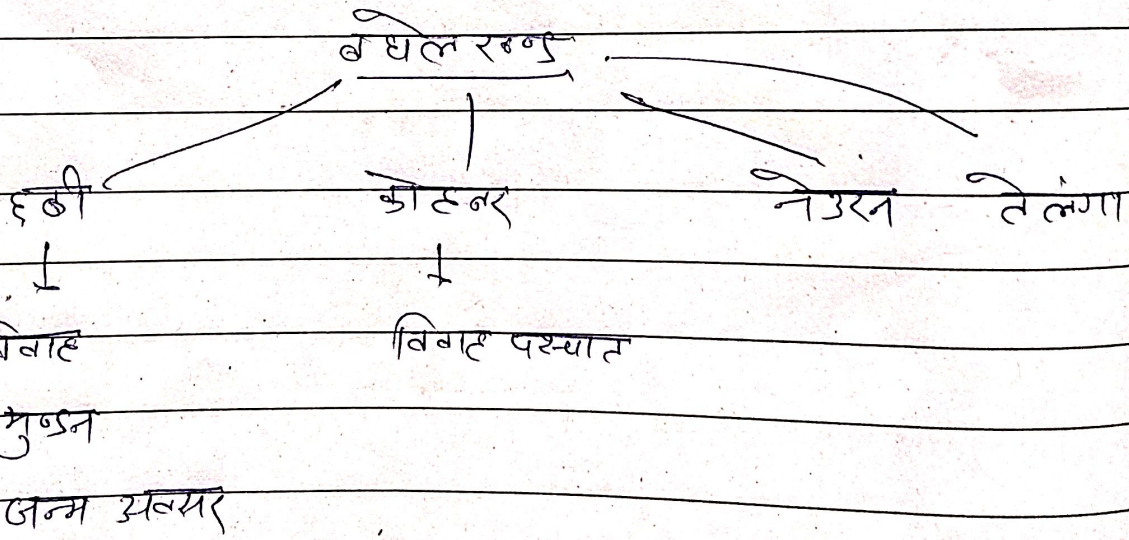 बघेलखण्ड
छठी कोहबर नेउरन तेलंगा
विवाह विवाह पश्चात
मुण्डन
जन्म अवसर